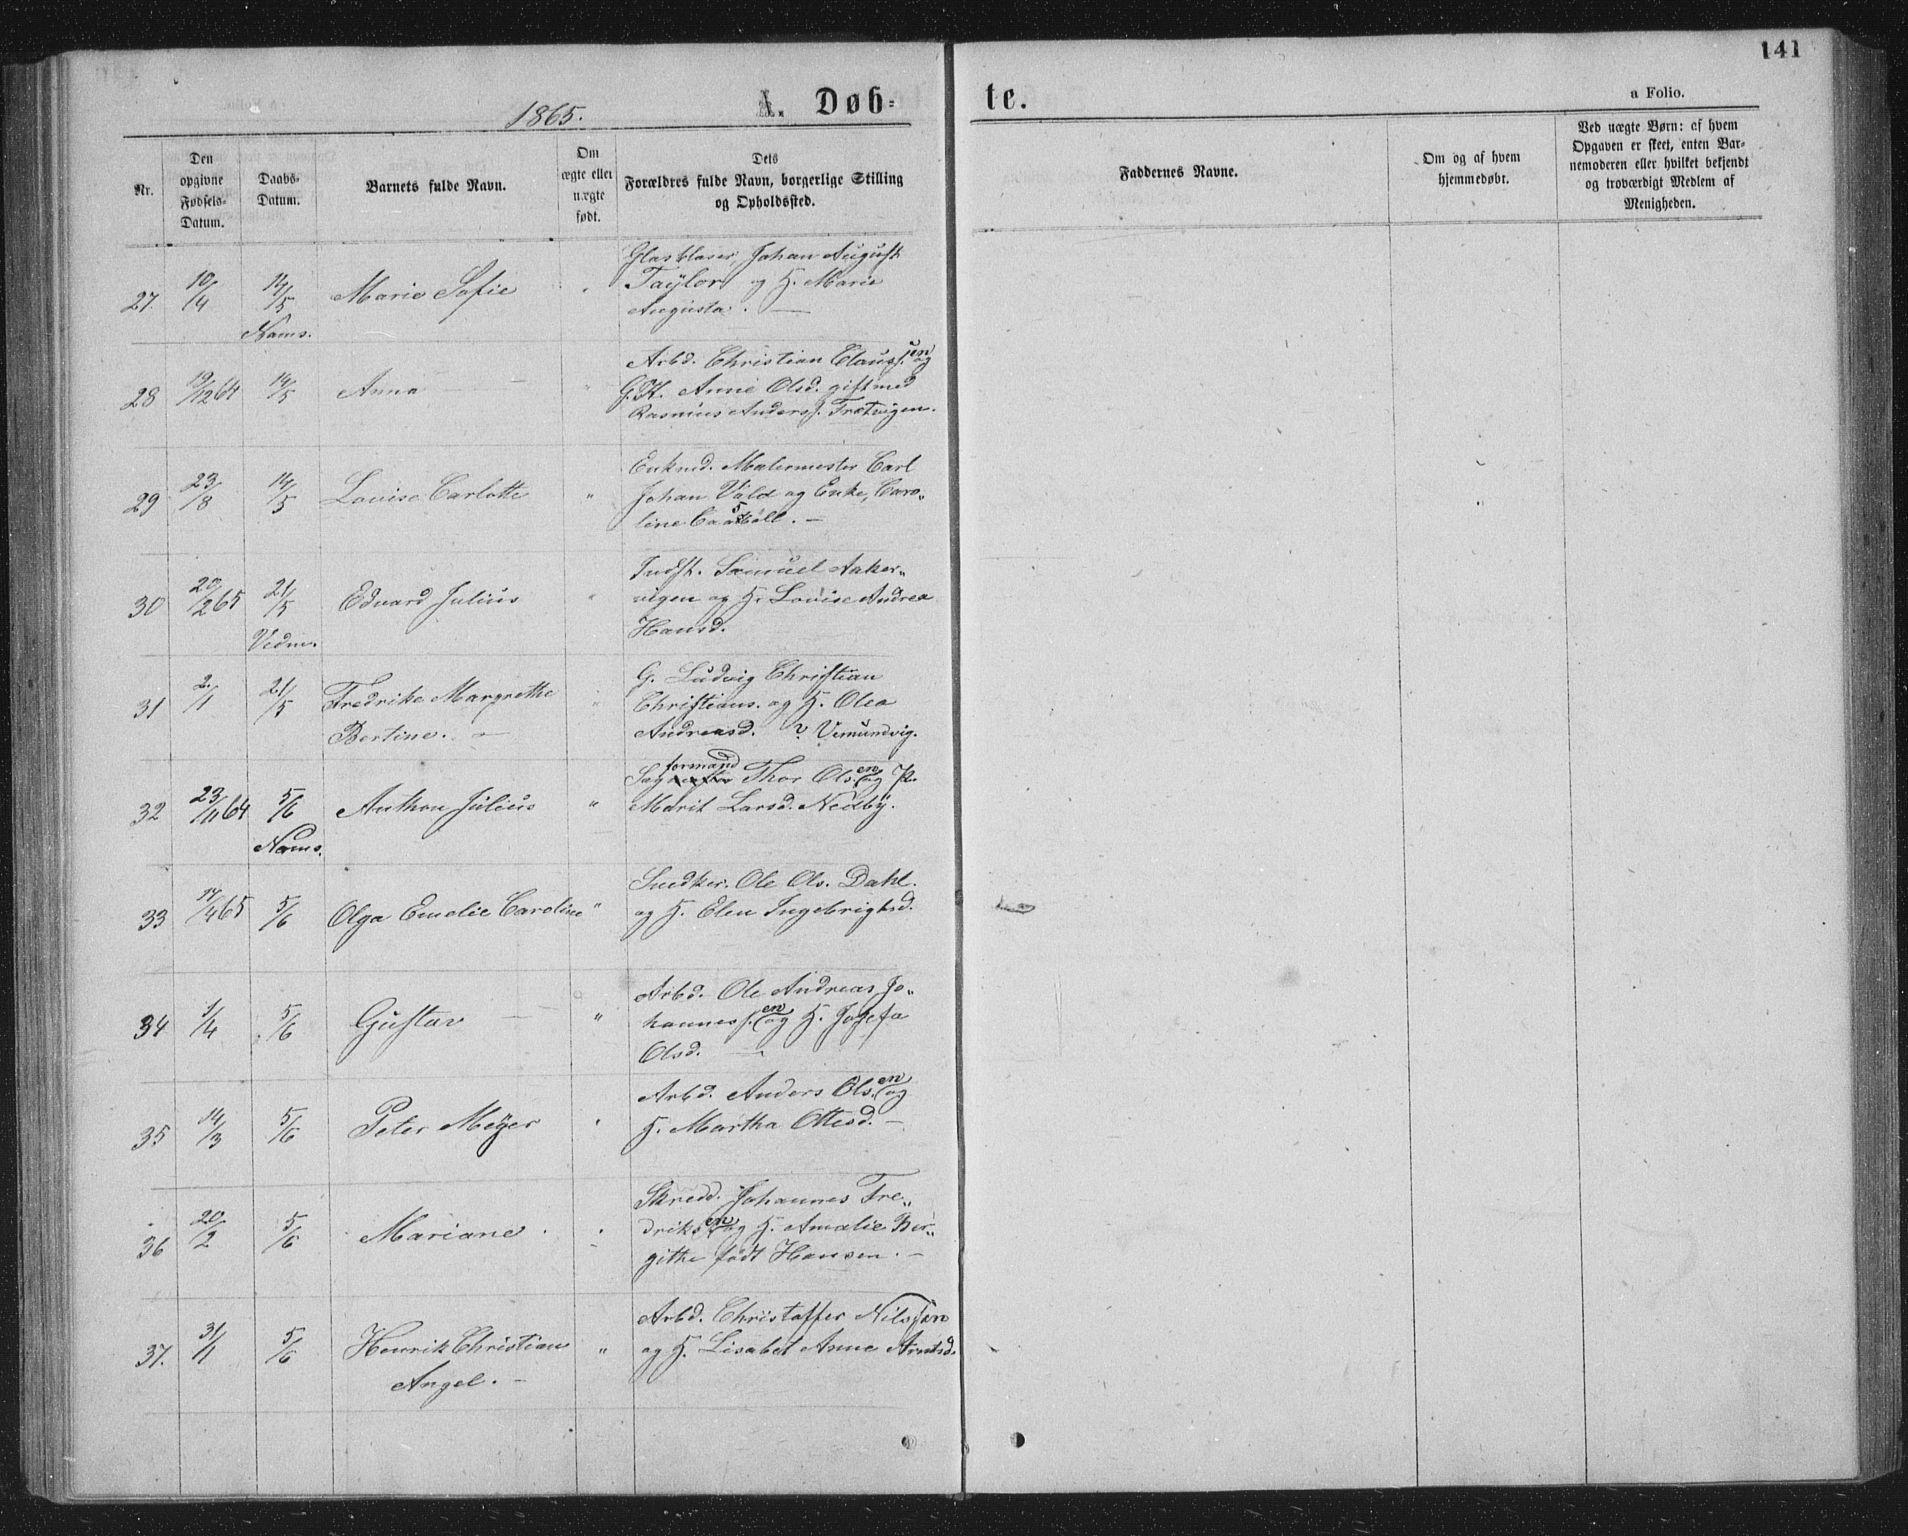 141
1865.
A. Døb-
te.
a Folio.
Nr.
Den
opgivne
Fødsels-
Datum.
Daabs-
Datum.
Barnets fulde Navn.
Om
ægte eller
uægte
født.
Dets
Forældres fulde Navn, borgerlige Stilling
og Opholdssted.
Faddernes Navne.
Om og af hvem
hjemmedøbt.
Ved uægte Børn: af hvem
Opgaven er skeet, enten Bar-
nemoderen eller hvilket bekjendt
og troværdigt Medlem af
Menigheden.
27. 10/4 14/5 Marie Sofie
Nams.
Glasblaser, Johan August
Taylor og H. Marie
Augusta. —
28 19/12 64 14/5 Anna —
Arbd. Christian Clauss.en og
G.K. Anne Olsd. gift med
Rasmus Anders. Trætvigen.
29 23/8 14/5 Lovise Carlotte "
Enkmd. Malermester Carl
Johan Vold og Enke, Caro-
line —
30 20/2 65 21/5 Edvard Julius "
Vedm.
Indst. Samuel Aaker-
vigen og H. Lovise Andrea
Hansd.
31 2./1 21/5 Fredrike Margrethe "
Bertine. —
G. Ludvig Christian
Christians. og H. Olea
Andreasd. ? Vemundvig.
32 23/11 64 5/6 Anthon Julius "
Nams.
Sagformand Thor Ols.en og P.
Marit Larsd. Nedby.
33 17/4 65 5/6 Olga Emelie Caroline "
Snedker. Ole Ols. Dahl.
og H. Elen Ingebrigtsd.
34 3/4 5/6 Gustav — "
Arbd. Ole Andreas Jo-
hanness.en og H. Josefa
Olsd. —
35 14/3 5/6 Peter Meÿer "
Arbd. Anders Ols.en og
H. Martha Ottesd. —
36 20/2 5/6 Mariane "
Skredd. Johannes Fre-
driks.en og H. Amalie Ber-
githe født Hansen. —
37. 31/1 5/6 Henrik Christian "
Angel. —
Arbd. Christoffer Nilssen
og H. Lisabet Anne Arntsd.